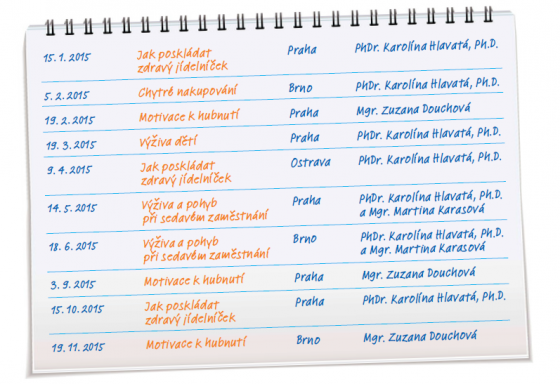 15. 1. 2015 Jak poskládat Praha PhDr. Karolína Hlavatá, Ph.D.
zdravý jídelníček
5. 2. 2015 Chytré nakupování Brno PhDr. Karolína Hlavatá, Ph.D.
19. 2. 2015 Motivace k hubnutí Praha Mgr. Zuzana Douchová
19. 3. 2015 Výživa dětí Praha PhDr. Karolína Hlavatá, Ph.D.
9. 4. 2015 Jak poskládat Ostrava PhDr. Karolína Hlavatá, Ph.D.
zdravý jídelníček
14. 5. 2015 Výživa a pohyb Praha PhDr. Karolína Hlavatá, Ph.D.
při sedavém zaměstnání a Mgr. Martina Karasová
18. 6. 2015 Výživa a pohyb Brno PhDr. Karolína Hlavatá, Ph.D.
při sedavém zaměstnání a Mgr. Martina Karasová
3. 9. 2015 Motivace k hubnutí Praha Mgr. Zuzana Douchová
15. 10. 2015 Jak poskládat Praha PhDr. Karolína Hlavatá, Ph.D.
zdravý jídelníček
19. 11. 2015 Motivace k hubnutí Brno Mgr. Zuzana Douchová